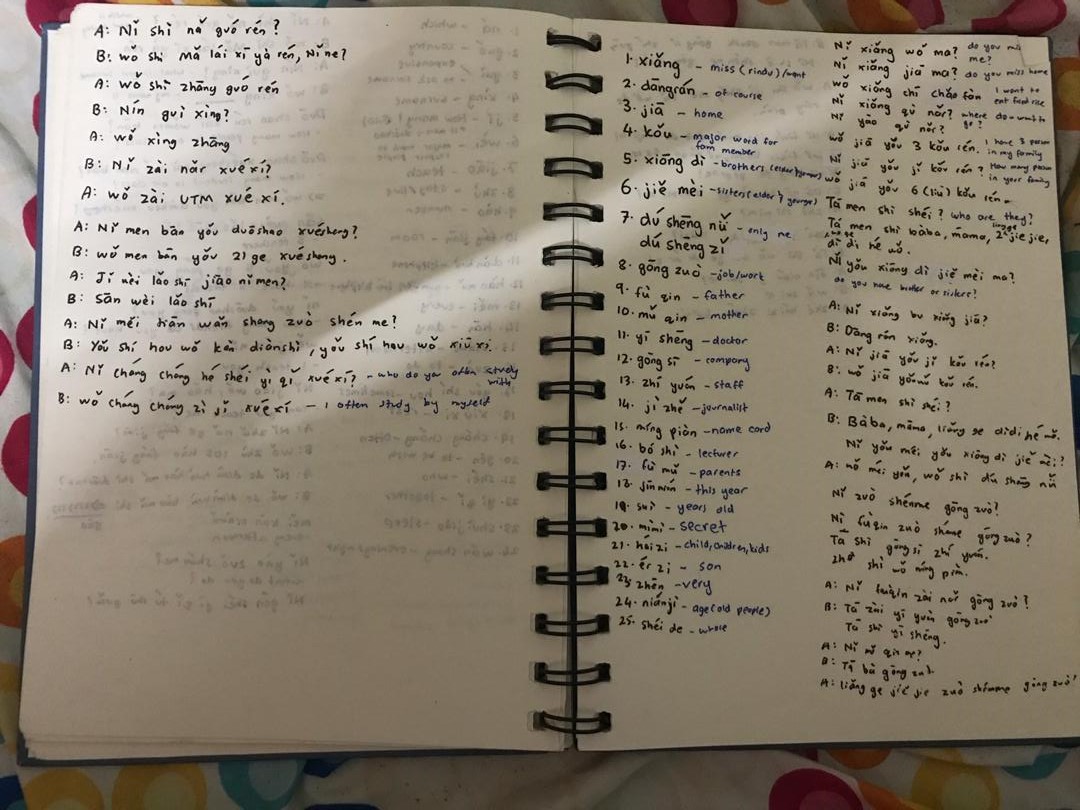 A: Nǐ shì nǎ guó rén?
B: wǒ shì Mǎ lái xī yà rén, Nǐ ne?
A: wǒ shì zhāng guó rén
B: Nín guì xìng?
A: wǒ xìng zhāng
B: Nǐ zài nǎr xué xí?
A: wǒ zài UTM xué xí.
A: Nǐ men bān yǒu duōshao xuésheng?
B: wǒ men bān yǒu 21 ge xuésheng.
A: Jǐ wèi lǎo shī jiāo nǐ men?
B: Sān wèi lǎo shī
A: Nǐ měi tiān wǎn shang zuò shén me?
B: Yǒu shí hou wǒ kàn diànshì, yǒu shí hou wǒ xiū xi.
A: Nǐ cháng cháng hé shéi yì qǐ xué xí? - who do you often study with
B: wǒ cháng cháng zì jǐ xué xí - I often study by myself
1. xiǎng - miss (rindu)/want
2. dāngrán - of course
3. jiā - home
4. kǒu - major word for fam member
5. xiōng dì - brothers (elder/younger)
6. jiě mèi - sisters (elder & younger)
7. dú shēng nǚ - only me
dú shēng zǐ
8. gōng zuò - job/work
9. fù qin - father
10. mǔ qin - mother
11. yī shēng - doctor
12. gōng sī - company
13. zhí yuán - staff
14. jì zhě - journalist
15. míng piàn - name card
16. bó shì - lecturer
17. fù mǔ - parents
18. jīnnián - this year
19. suì - years old
20. mìmì - secret
21. hái zi - child, children, kids
22. ér zi - son
23. zhēn - very
24. niánjì - age (old people)
25. shéi de - whole
Nǐ xiǎng wǒ ma? do you miss me?
Nǐ xiǎng jiā ma? do you miss home
wǒ xiǎng chī chǎo fàn I want to eat fried rice
Nǐ xiǎng qù nǎr? where do u want to go?
Nǐ yào qù nǎr?
wǒ jiā yǒu 3 kǒu rén. I have 3 person in my family
Nǐ jiā yǒu jǐ kǒu rén? How many person in your family
wǒ jiā yǒu 6 (liù) kǒu rén.
Tā men shì shéi? who are they?
Tā men shì bàba, māma, liǎngge jiě jie,
dì di hé wǒ.
Nǐ yǒu xiōng dì jiě mèi ma?
do you have brother or sisters?
A: Nǐ xiǎng bu xiǎng jiā?
B: Dāng rán xiǎng.
A: Nǐ jiā yǒu jǐ kǒu rén?
B: wǒ jiā yǒu kǒu rén.
A: Tā men shì shéi?
B: Bàba, māma, liǎng ge dìdi hé wǒ.
Nǐ yǒu méi yǒu xiōng dì jiě mèi?
A: méi yǒu, wǒ shì dú shēng nǚ
Nǐ zuò shénme gōng zuò?
Nǐ fùqin zuò shénme gōng zuò?
Tā shì gōng sī zhí yuán.
zhè shì wǒ míng piàn.
A: Nǐ fùqin zài nǎr gōng zuò?
B: Tā zài yī yuàn gōng zuò
Tā shì yī shēng.
A: Nǐ mǔ qin ne?
B: Tā bù gōng zuò.
A: liǎng ge jiě jie zuò shénme gōng zuò?